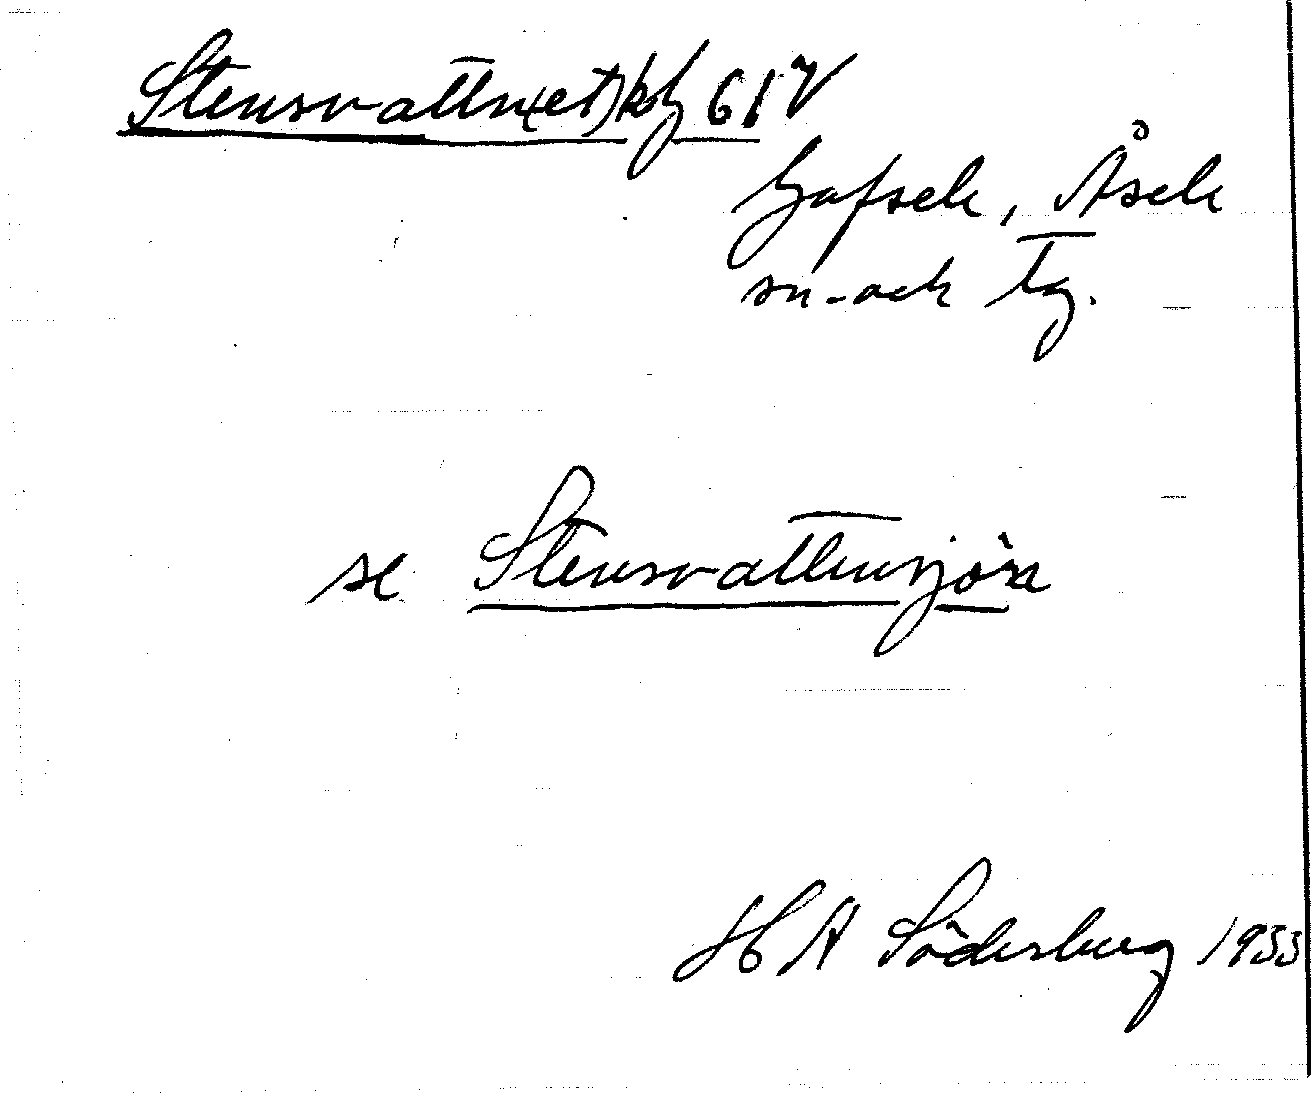 Stensvattn(et) kbl 61V
Gafsele, Åsele
sn. och tg.
se Stensvattensjön
H A Söderberg 1933